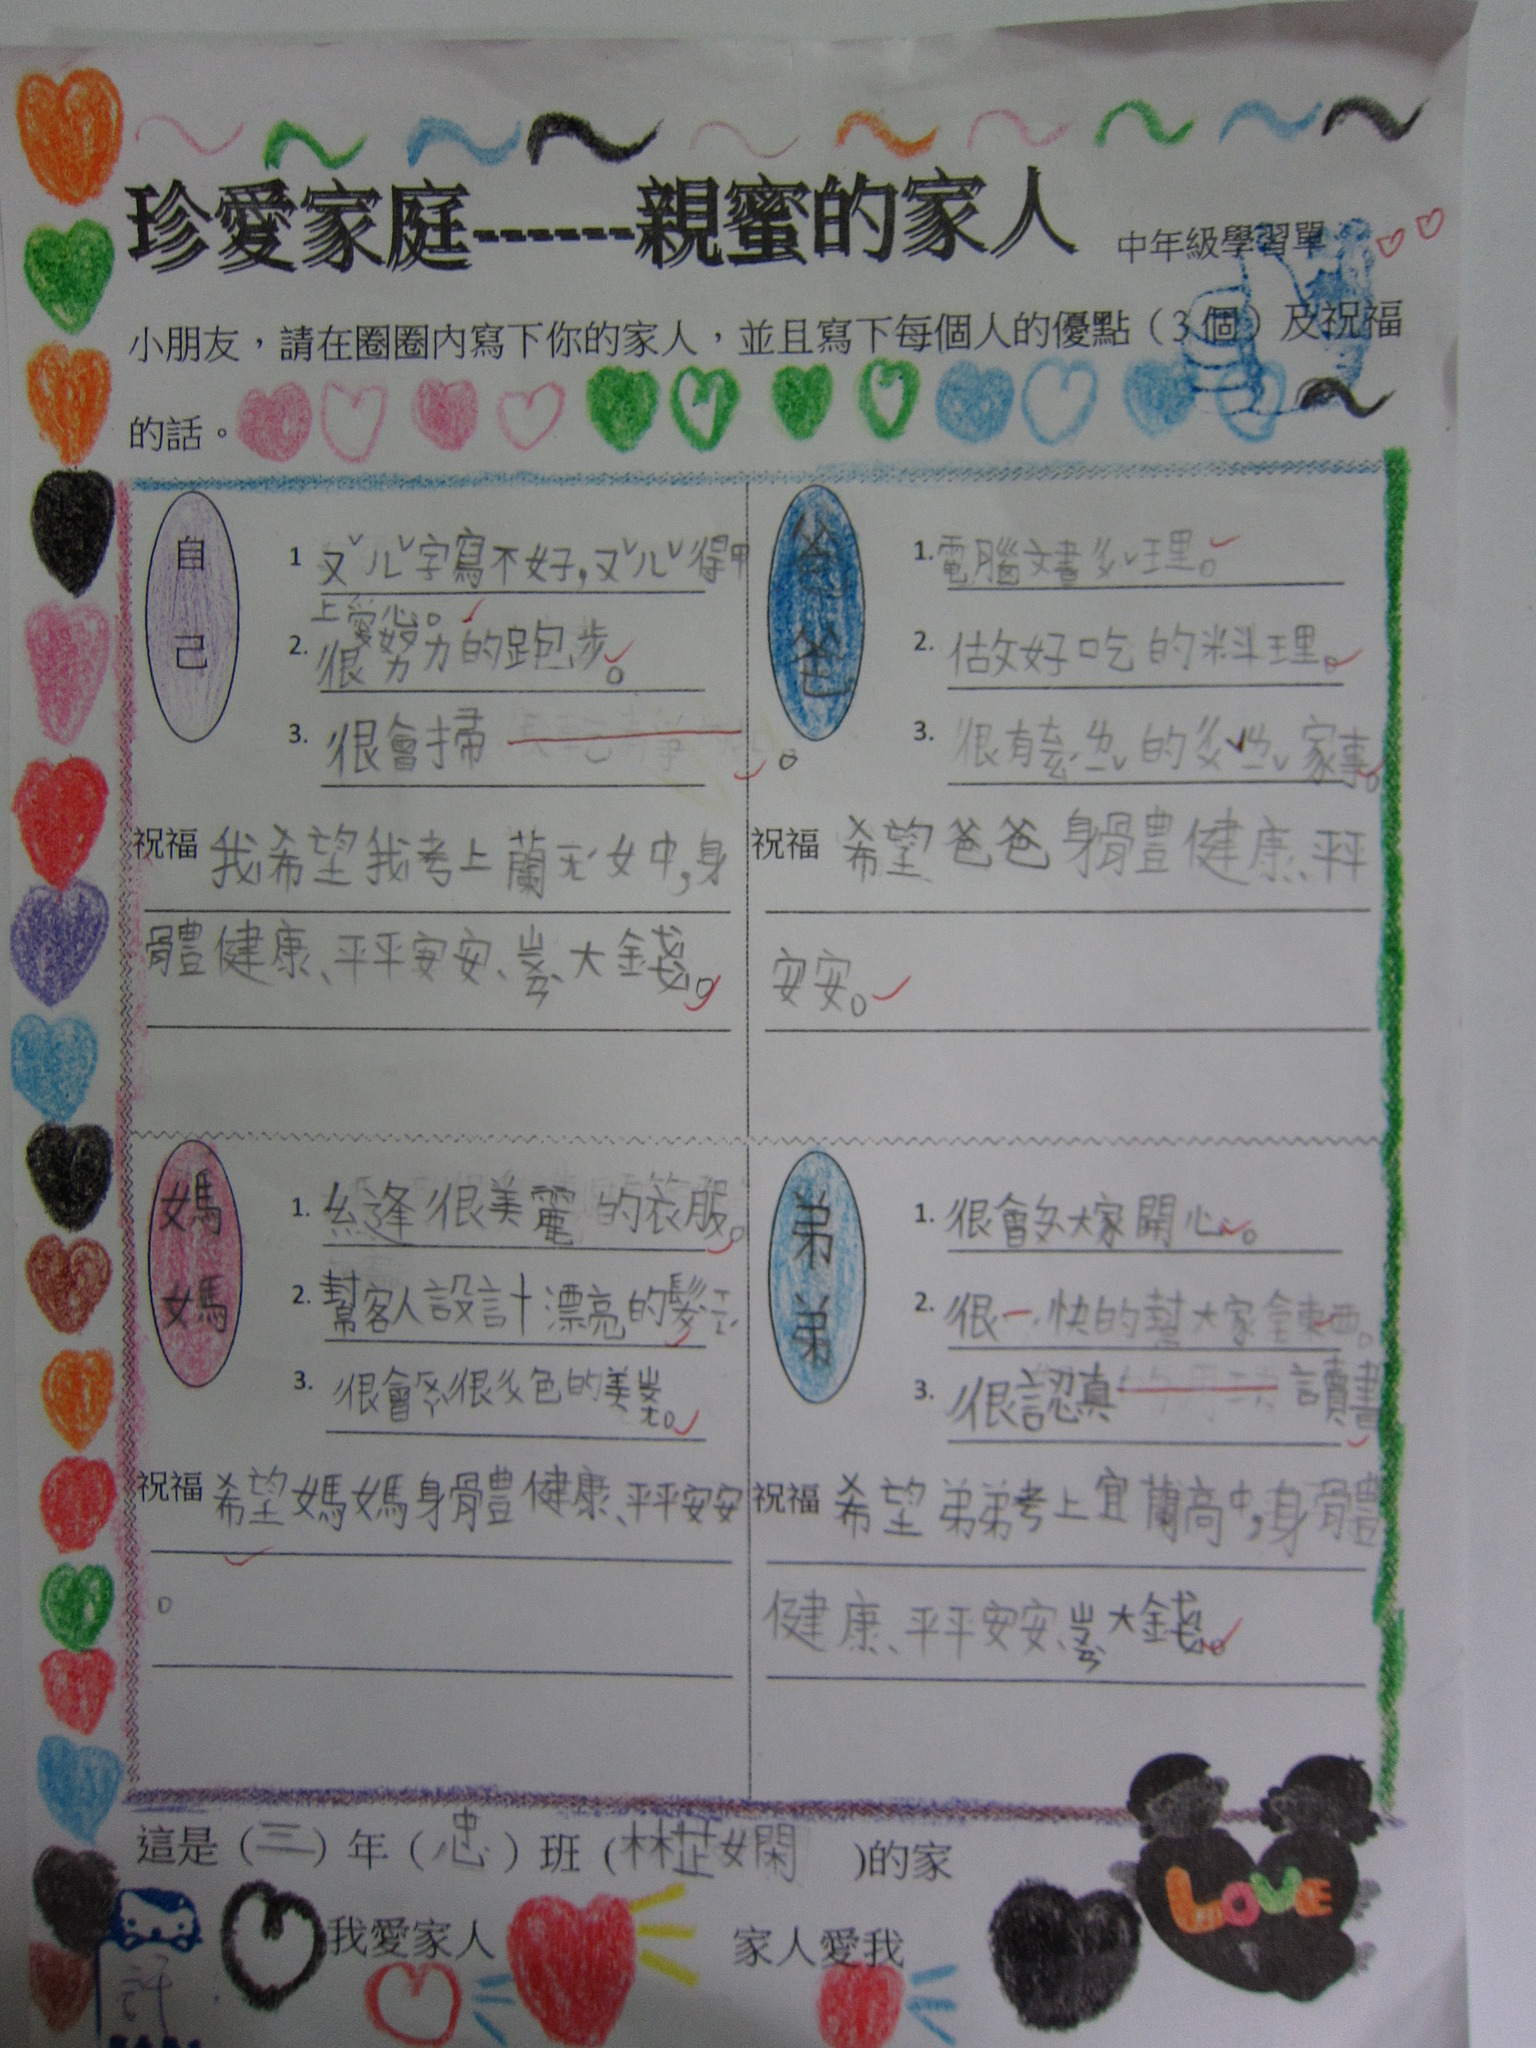 珍愛家庭------親蜜的家人 中年級學習單
小朋友，請在圈圈內寫下你的家人，並且寫下每個人的優點（3個）及祝福
的話。
自己
1 ㄡˇㄦˇ字寫不好,ㄡˇㄦˇ得甲
上愛心。
2. 很努力的跑步。
3. 很會掃
祝福 我希望我考上蘭女中,身
體健康、平平安安、大錢。
爸爸
1. 電腦文書ㄔㄨˇ理。
2. 做好吃的料理。
3. 很有的家事。
祝福 希望爸爸身體健康、平平
安安。
媽媽
1. 縫很美麗的衣服。
2. 幫客人設計漂亮的髮
3. 很會很色的美
祝福 希望媽媽身體健康、平平安安
。
弟弟
1. 很會大家開心。
2. 很快的幫大家拿東西。
3. 很認真讀書
祝福 希望弟弟考上宜蘭高中,身體
健康、平平安安、大錢。
這是（三）年（忠）班(林芷嫻)的家
我愛家人 家人愛我
LOVE
許